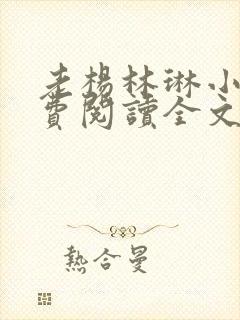 老楊林琳小
費閱讀全文
熱合曼